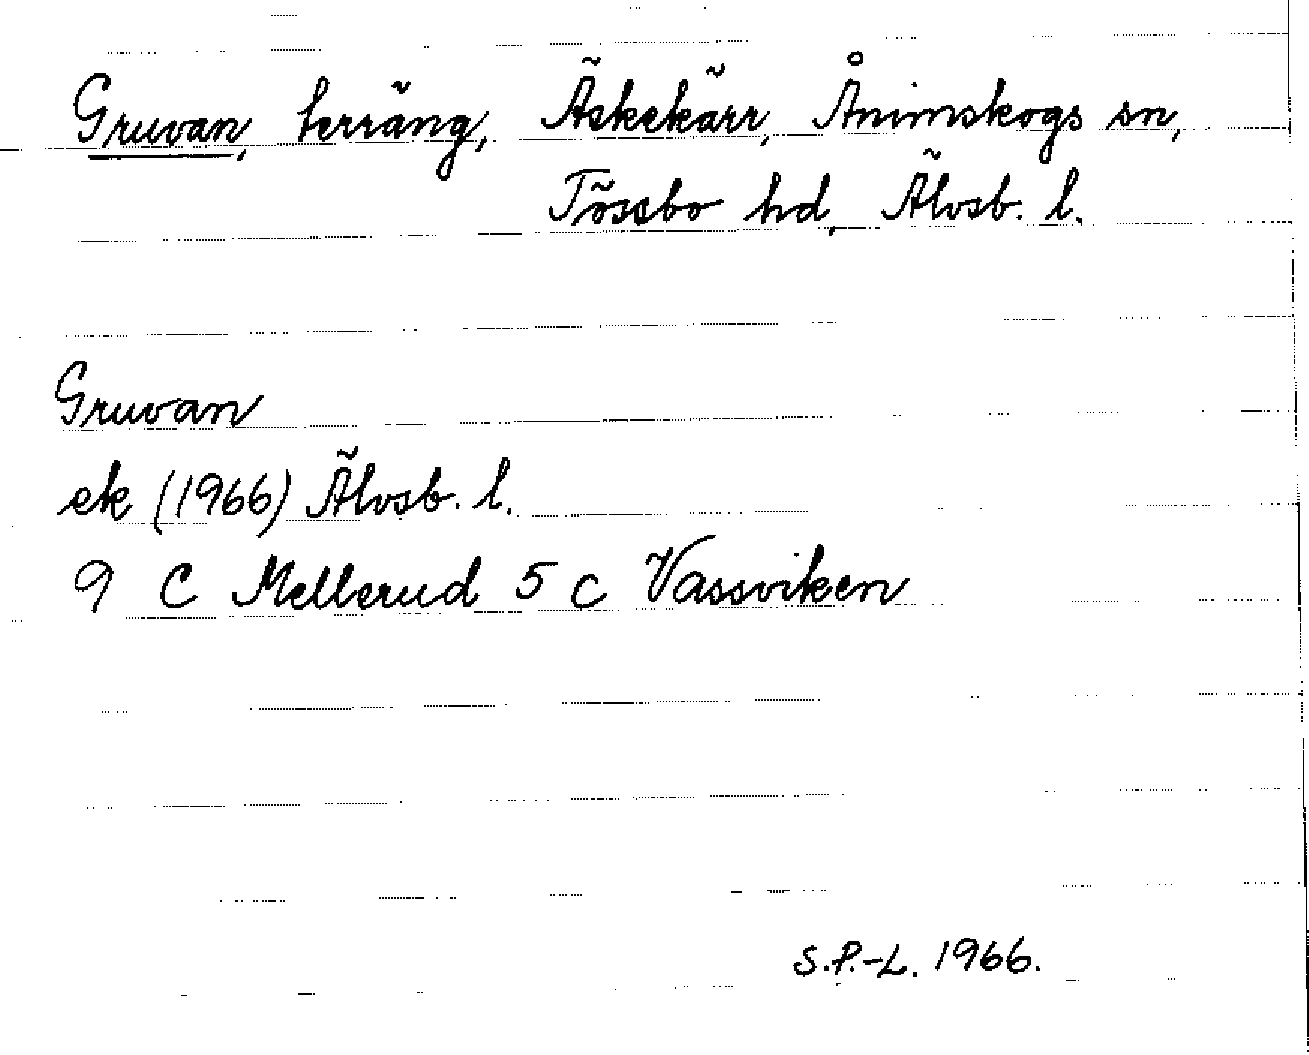 Gruvan, terräng, Äskekärr, Ånimskogs sn,
Tössbo hd, Älvsb. l.
Gruvan
ek (1966) Älvsb. l.
9 C Mellerud 5 c Vassviken
S.P.-L. 1966.